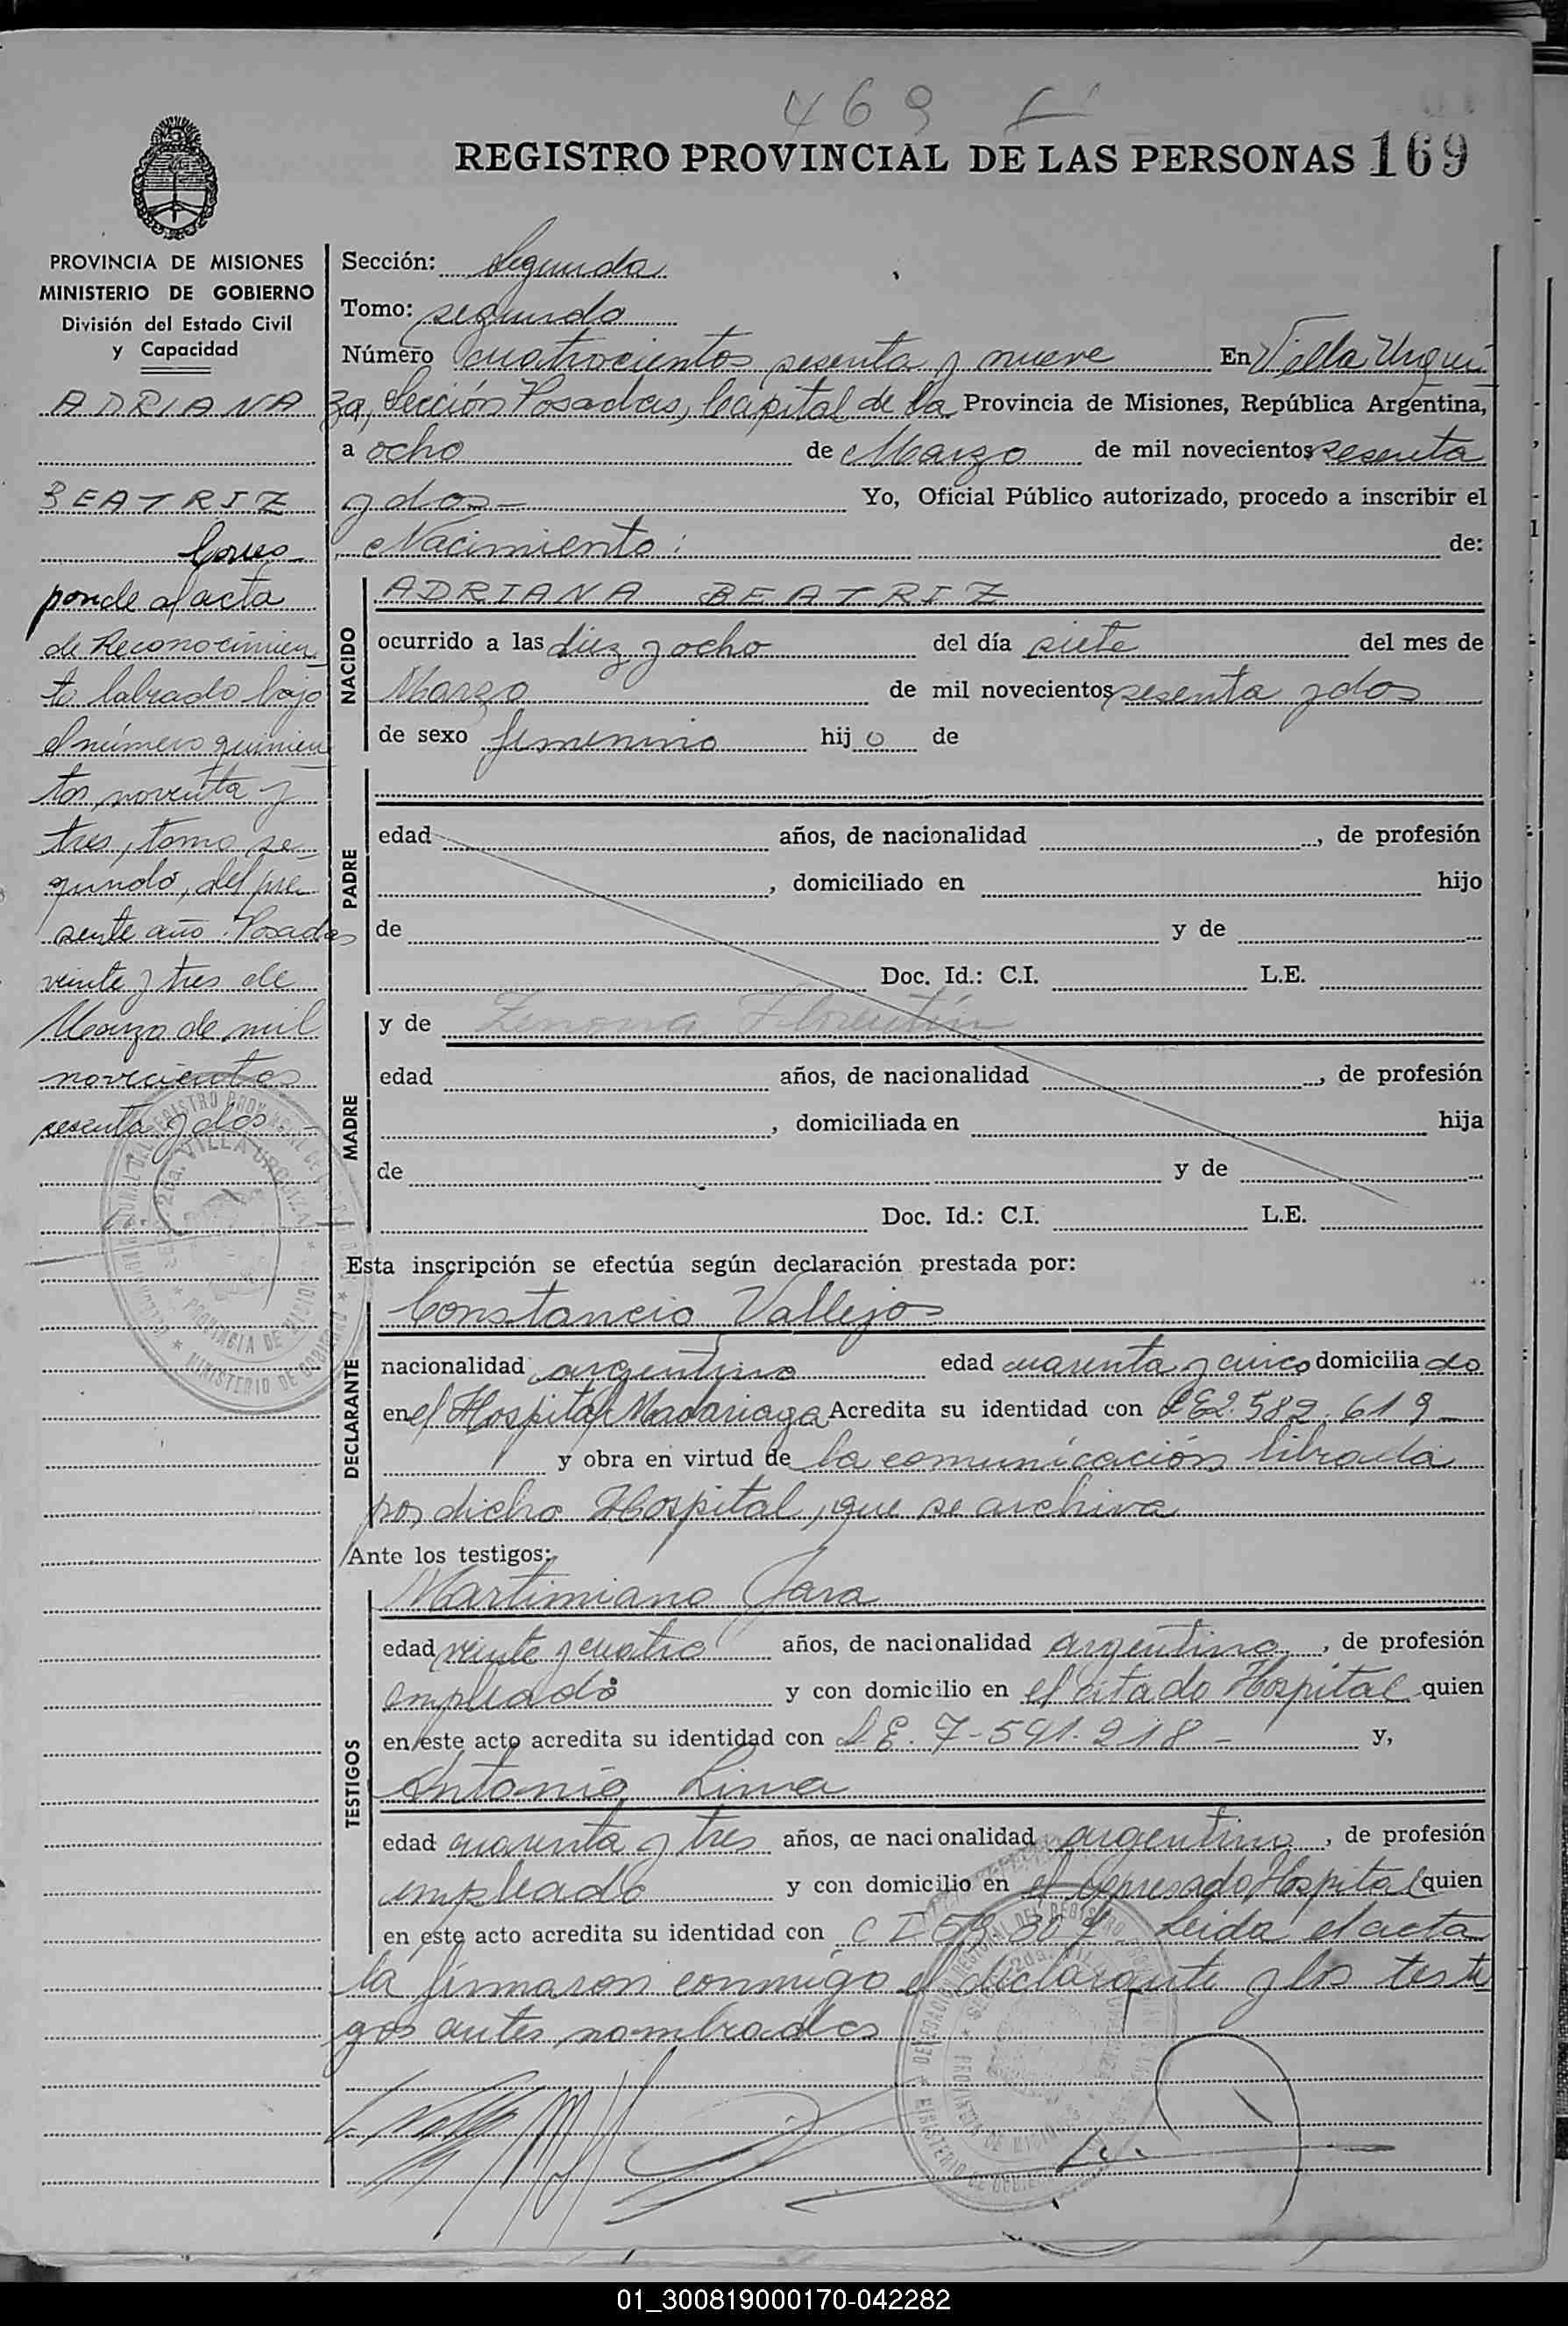 469
REGISTRO PROVINCIAL DE LAS PERSONAS 169
PROVINCIA DE MISIONES
MINISTERIO DE GOBIERNO
División del Estado Civil
y Capacidad
ADRIANA
BEATRIZ
Corres
ponde al acta
de Reconocimien
to labrado bajo
el número quinien
tos noventa y
tres, tomo se-
gundo, del pre
sente año. Posadas
veinte y tres de
Marzo de mil
novecientos
sesenta y dos
Sección: Segunda
Tomo: segundo
Número Cuatrocientos sesenta y nueve En Villa Urqui
za, Sección Posadas, Capital de la Provincia de Misiones, República Argentina,
a ocho de Marzo de mil novecientos sesenta
y dos- Yo, Oficial Público autorizado, procedo a inscribir el
Nacimiento: de:
NACIDO
ADRIANA BEATRIZ
ocurrido a las diez y ocho del día siete del mes de
Marzo de mil novecientos sesenta y dos
de sexo femenino hijo de
PADRE
edad años, de nacionalidad , de profesión
, domiciliado en hijo
de y de
Doc. Id.: C.I. L.E.
MADRE
y de Zenona Florentín
edad años, de nacionalidad , de profesión
, domiciliada en hija
de y de
Doc. Id.: C.I. L.E.
Esta inscripción se efectúa según declaración prestada por:
DECLARANTE
Constancio Vallejos
nacionalidad argentino edad cuarenta y cinco domiciliado
en el Hospital Madariaga Acredita su identidad con LE2.582.619-
y obra en virtud de la comunicación librada
por dicho Hospital, que se archiva
Ante los testigos:
TESTIGOS
Martimiano Jara
edad veinte y cuatro años, de nacionalidad argentina, de profesión
empleado y con domicilio en el citado Hospital quien
en este acto acredita su identidad con LE. 7-591.218- y,
Antonio Lima
edad cuarenta y tres años, de nacionalidad argentina, de profesión
empleado y con domicilio en el expresado Hospital quien
en este acto acredita su identidad con C I Leida el acta
la firmaron conmigo el declarante y los testi
gos antes nombrados
01_300819000170-042282